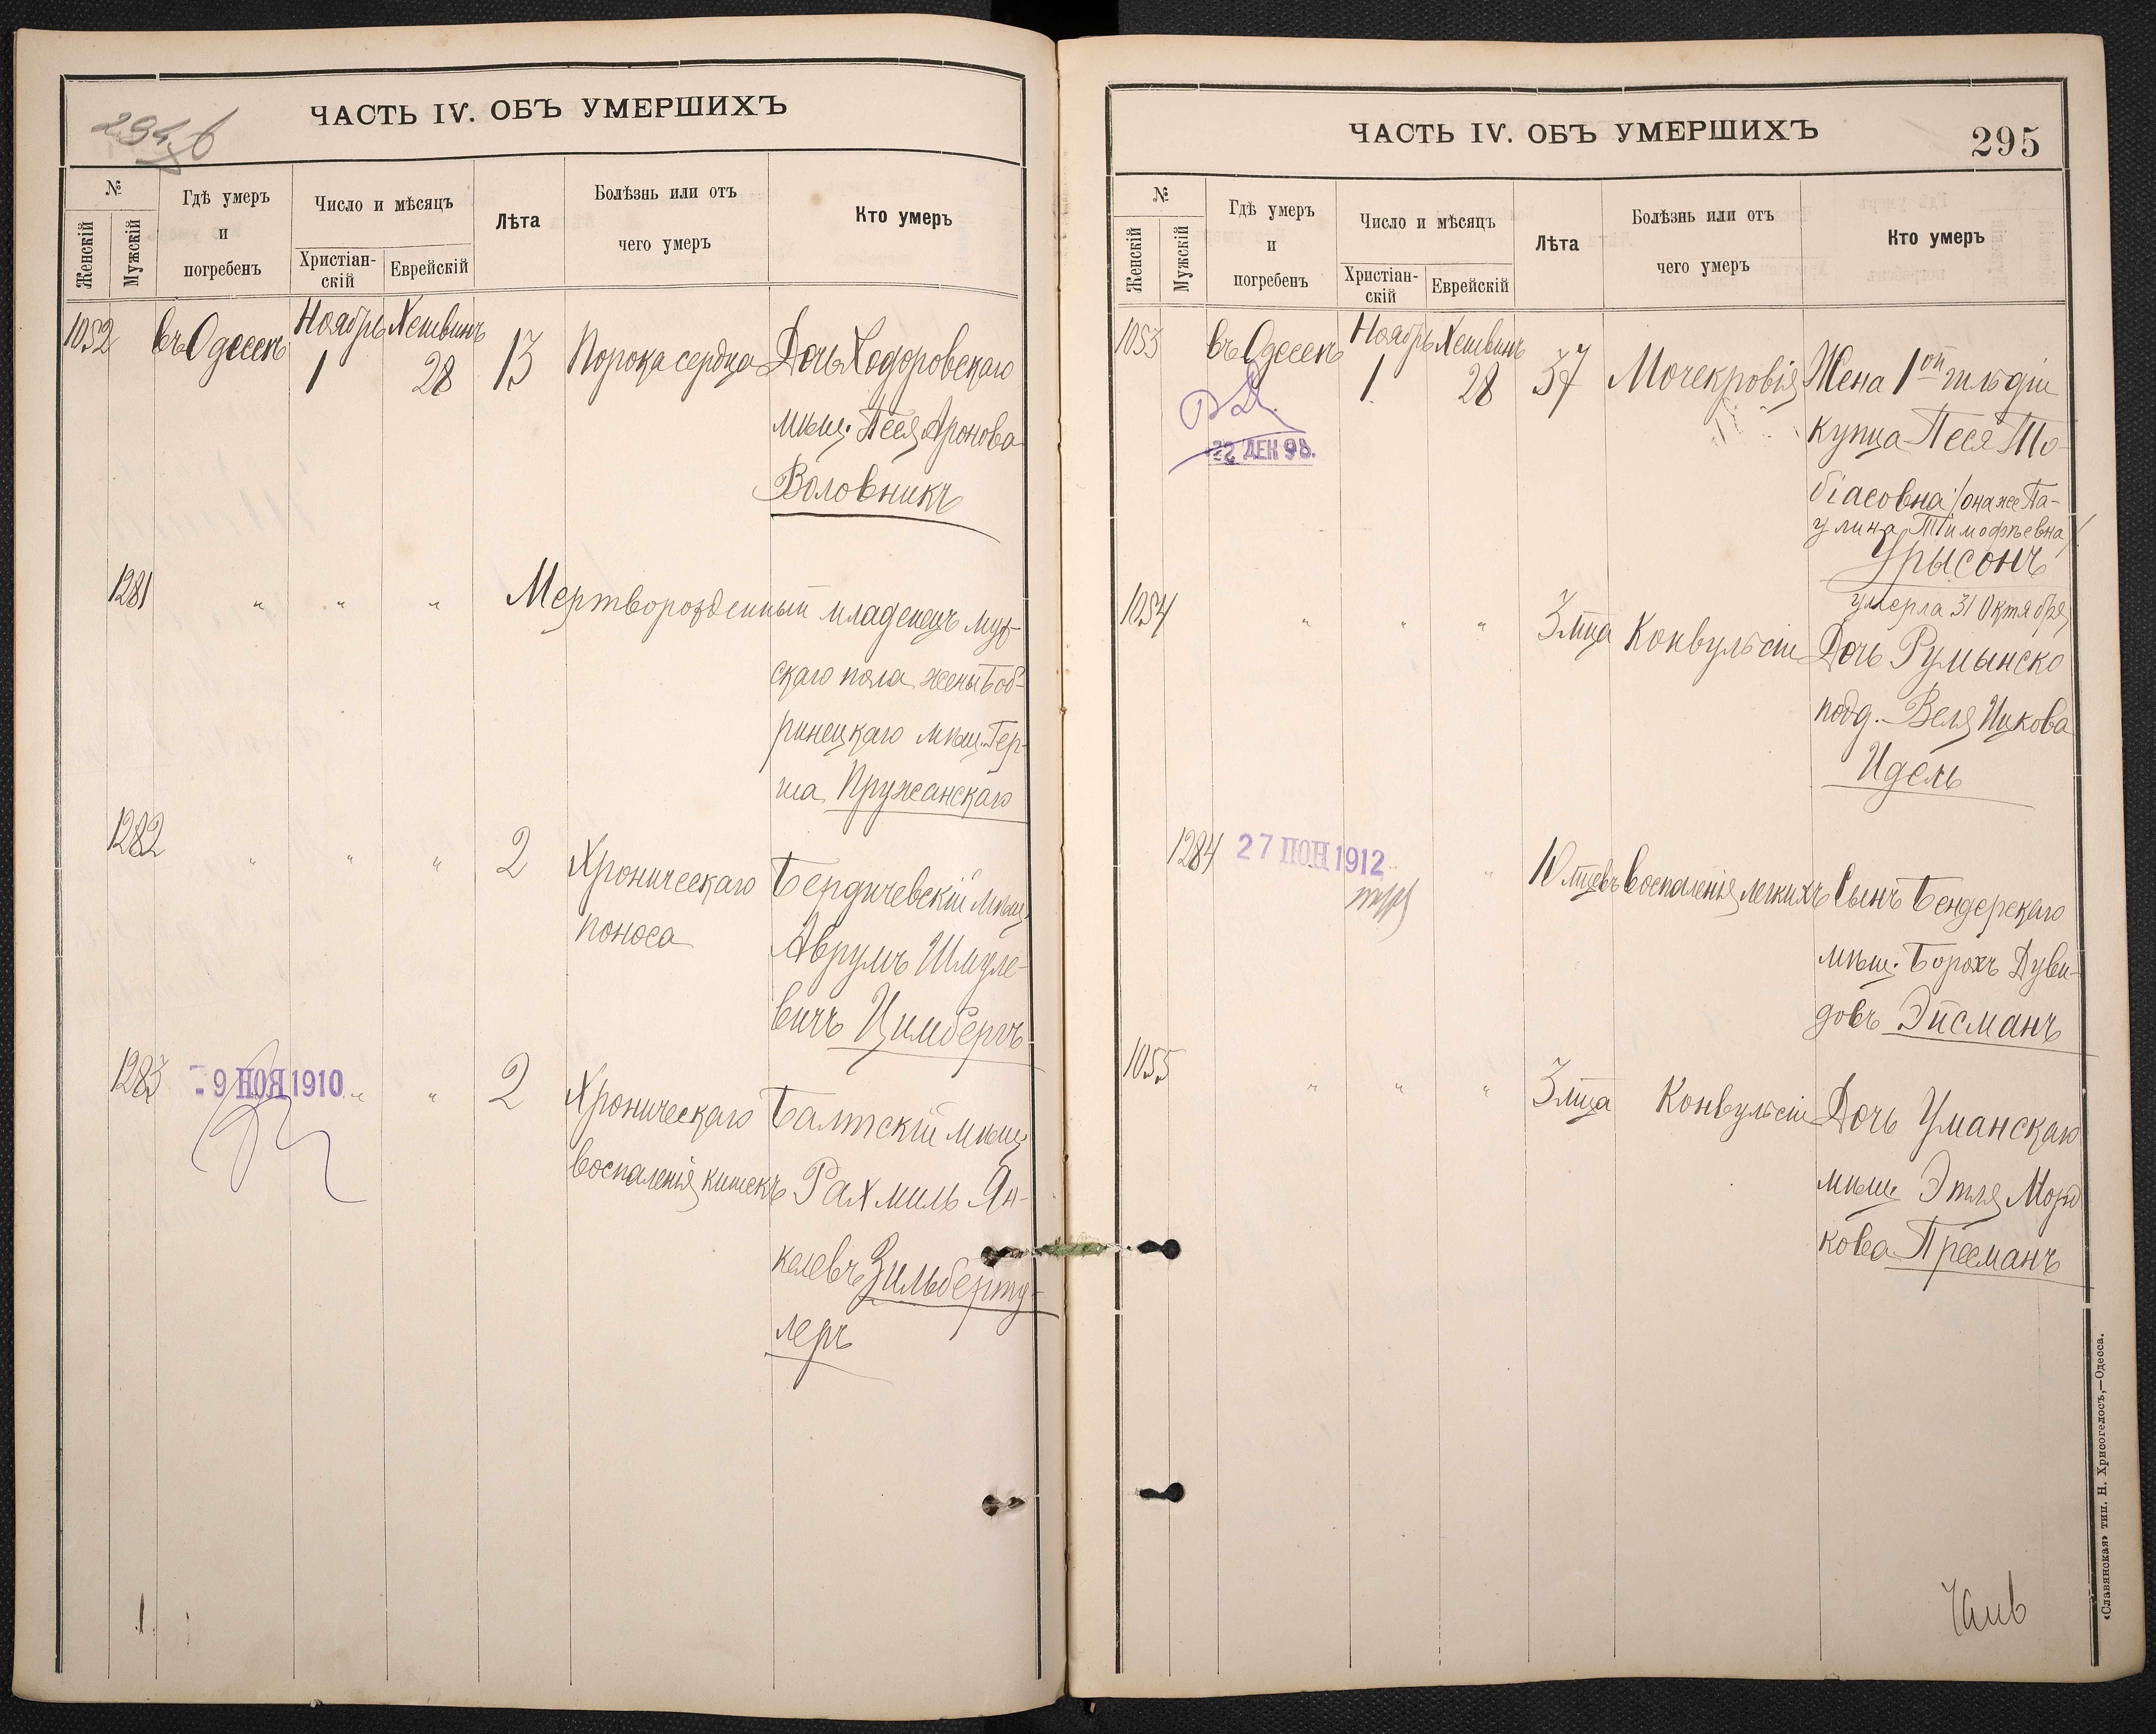 294 б
ЧАСТЬ IV. ОБЪ УМЕРШИХЪ
№
Женскій
Мужскій
Гдѣ умеръ
и
погребенъ
Число и мѣсяцъ
Христіан-
скій
Еврейскій
Лѣта
Болѣзнь или отъ
чего умеръ
Кто умеръ
1052 въ Одессѣ Ноябрь 1 Хешвинъ 28 13 Порока сердца Дочь Ходоровскаго
мѣщ. Песя Аронова
Воловникъ
1281 " " " Мертворожденный младенецъ муж-
скаго пола жены Боб-
ринецкаго мѣщ. Гер-
ша Пружанскаго
1282 " " " 2 Хроническаго Бердичевскій мѣщ.
поноса Аврумъ Шмуле-
вичъ Цимбергъ
1283 - 9 НОЯ 1910 " " 2 Хроническаго Балтскій мѣщ.
воспаленія кишекъ Рахмиль Ян-
келевъ Зильберту-
леръ
ЧАСТЬ IV. ОБЪ УМЕРШИХЪ
295
№
Женскій
Мужскій
Гдѣ умеръ
и
погребенъ
Число и мѣсяцъ
Христіан-
скій
Еврейскій
Лѣта
Болѣзнь или отъ
чего умеръ
Кто умеръ
1053 въ Одессѣ Ноябрь 1 Хешвинъ 28 37 Мочекровія Жена 1ой гильдіи
купца Песя То-
22 ДЕК 98.
біасовна /она же Па-
улина Тимофѣевна/
Урысонъ
умерла 31 Октября
1054 " " " 3 мца Конвульсіи Дочь Румынско
подд. Веля Ицкова
Идель
1284 27 ПОН 1912 " 10 мцевъ воспаленія легкихъ Сынъ Бендерскаго
мѣщ. Борохъ Дуви-
довъ Эйсманъ
1055 " " " 3 мца Конвульсіи Дочь Уманскаго
мѣщ. Этля Морд
кова Пресманъ
«Славянская» тип. Н. Хрисогелосъ,—Одесса.